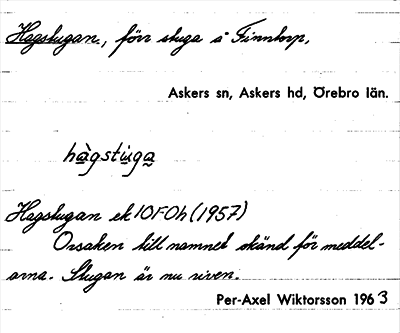 Hagstugan, förr stuga å Finntorp,
Askers sn, Askers hd, Örebro län.
hàgstuga
Hagstugan ek 10F0h (1957)
Orsaken till namnet okänd för meddel-
arna. Stugan är nu riven.
Per-Axel Wiktorsson 1963